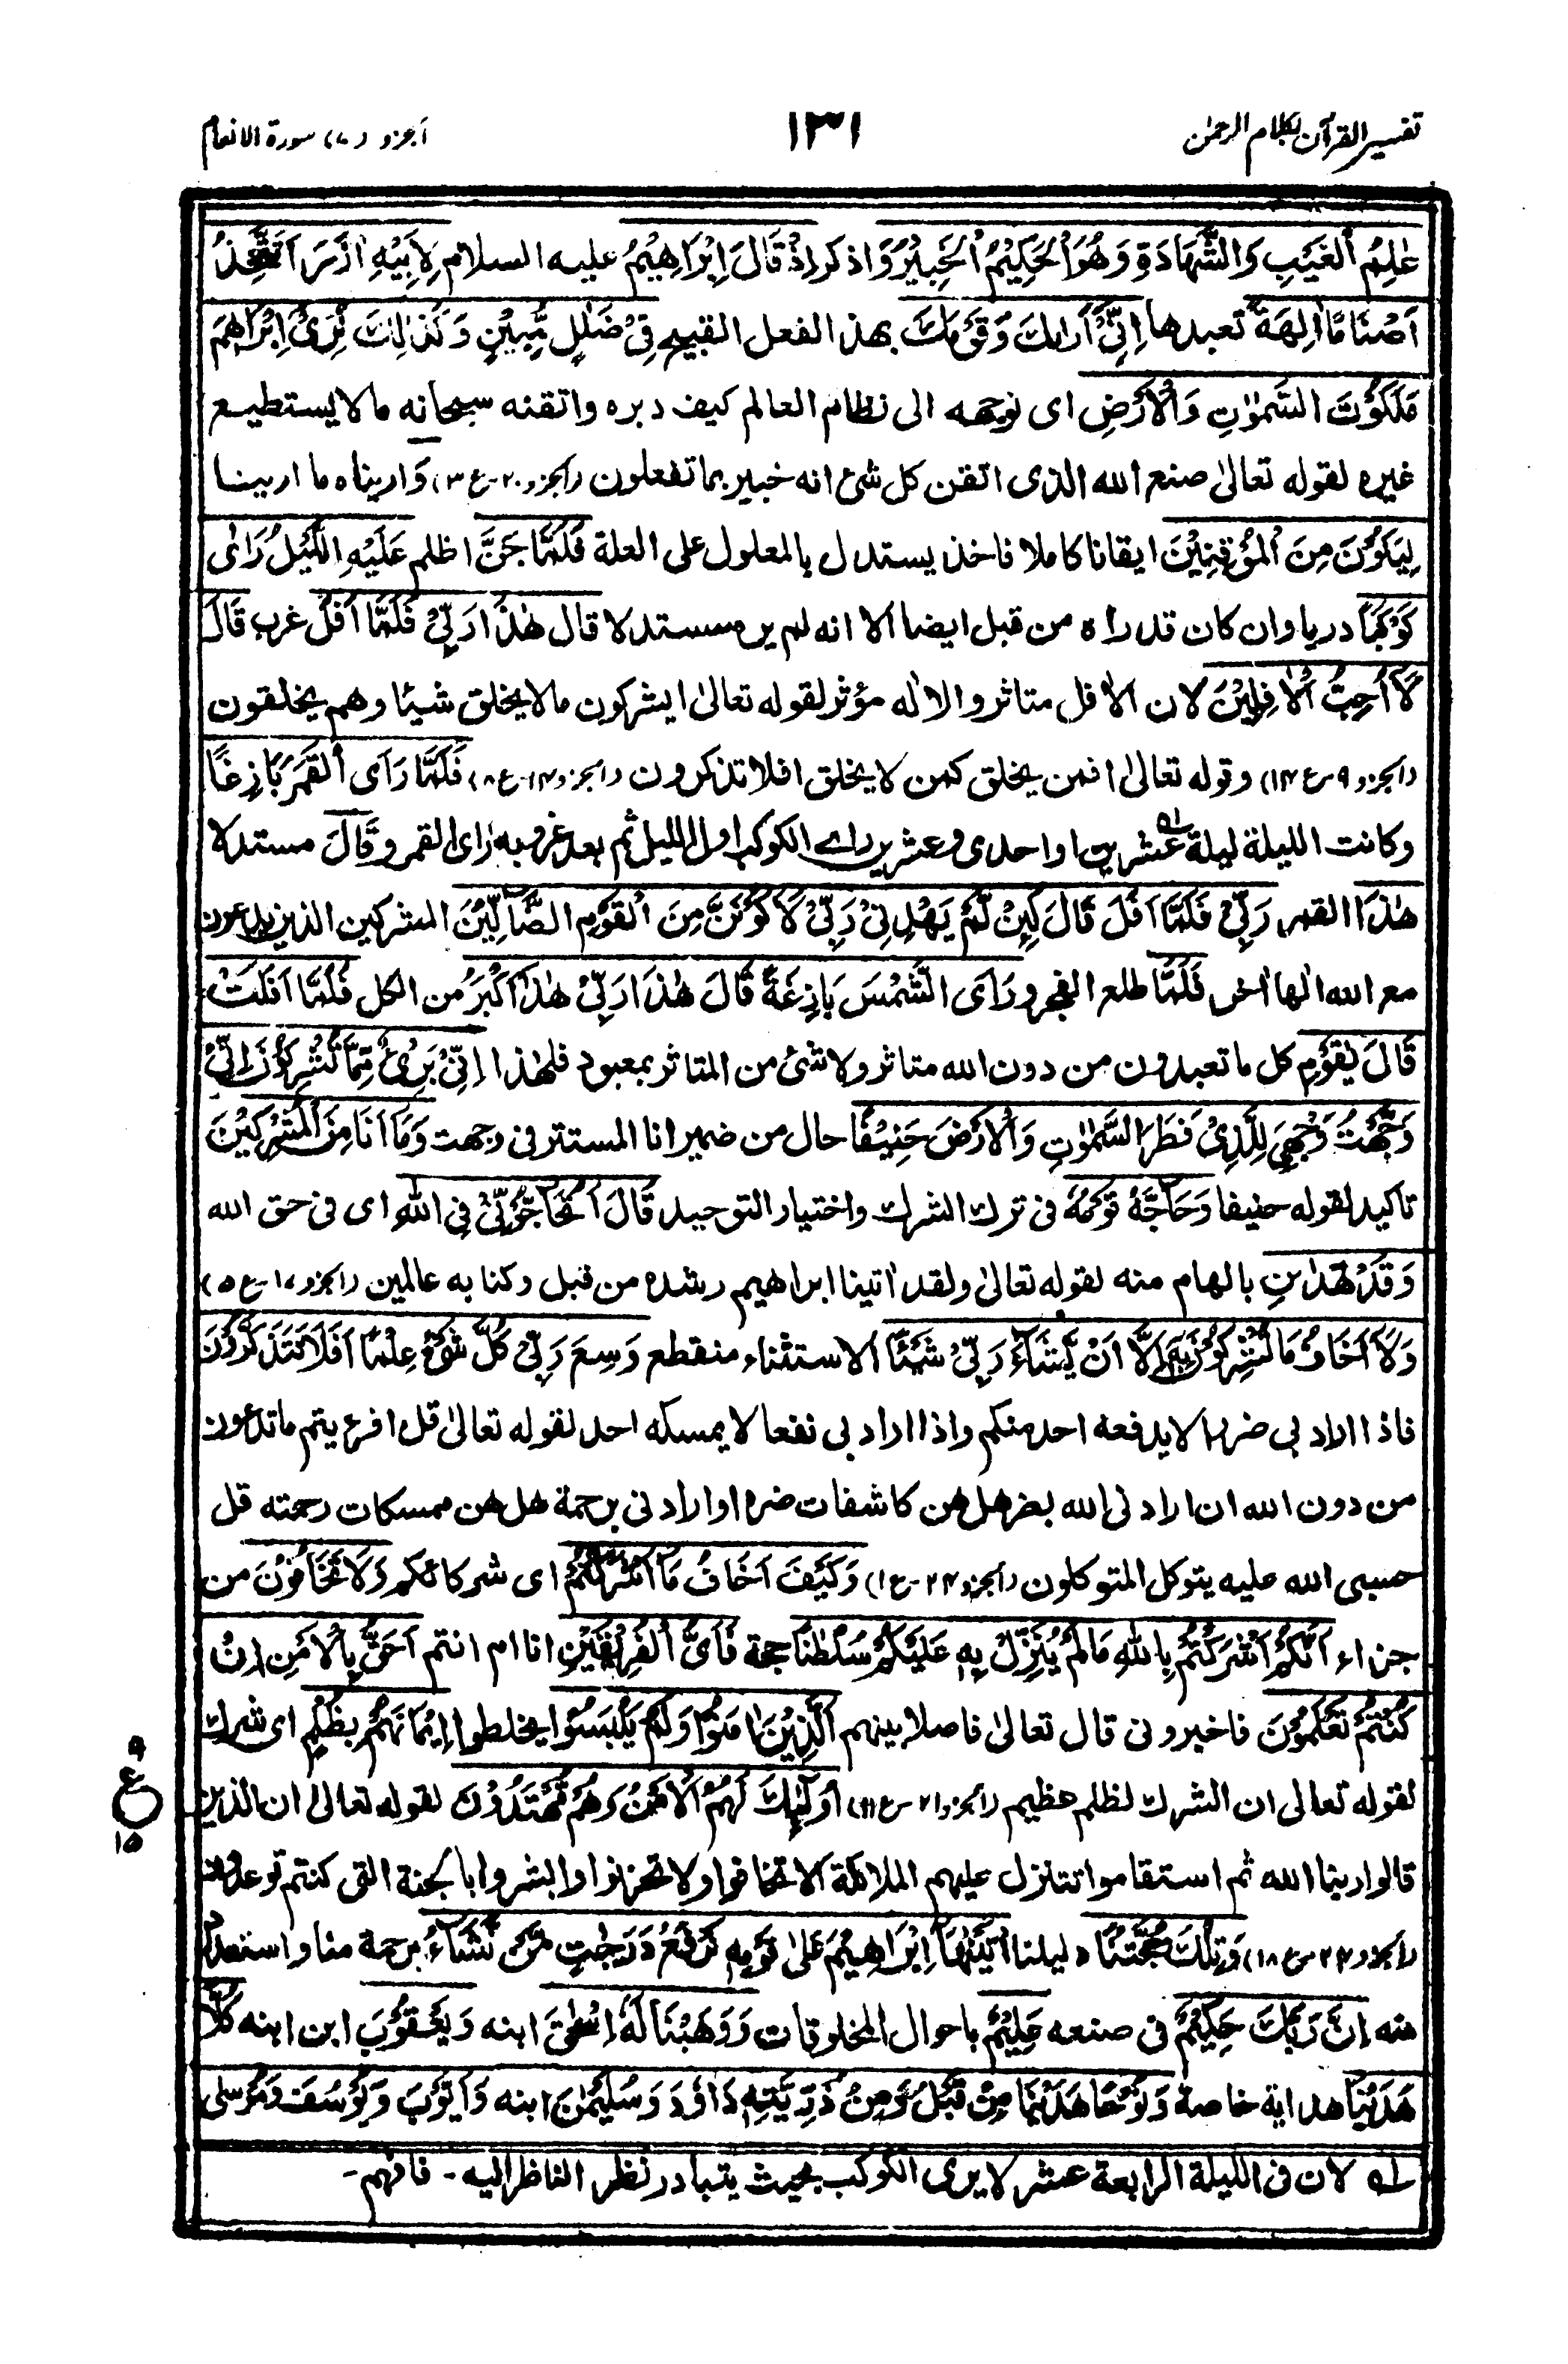 تفسير القرآن بكلام الرحمٰن
١٣١
الجزو (٧) سورة الانعام
عٰلِمُ الْغَيْبِ وَالشَّهَادَةِ وَهُوَ الْحَكِيْمُ الْخَبِيْرُ وَاذكر اِذْ قَالَ اِبْرَاهِيْمُ عليه السلام لِاَبِيْهِ اٰزَرَ اَتَتَّخِذُ
اَصْنَامًا اٰلِهَةً تعبدها اِنِّيْٓ اَرٰىكَ وَقَوْمَكَ بهذ الفعل القبيح فِيْ ضَلٰلٍ مُّبِيْنٍ وَكَذٰلِكَ نُرِيْٓ اِبْرٰهِيْمَ
مَلَكُوْتَ السَّمٰوٰتِ وَالْاَرْضِ اى نوجهه الى نظام العالم كيف دبره واتقنه سبحانه مالا يستطيع
غيره لقوله تعالىٰ صنع الله الذى اتقن كل شئ انه خبير بما تفعلون (الجزو٢٠-ع٣) وَاريناه ما ارينا
لِيَكُوْنَ مِنَ الْمُوْقِنِيْنَ ايقانا كاملا فاخذ يستدل بالمعلول على العلة فَلَمَّا جَنَّ اظلم عَلَيْهِ اللَّيْلُ رَاٰى
كَوْكَبًا دريا وان كان قد راٰه من قبل ايضا الا انه لم يره مستدلا قال هٰذَا رَبِّيْ فَلَمَّا اَفَلَ غرب قَالَ
لَآ اُحِبُّ الْاٰفِلِيْنَ لان الاٰفل متاثر والا له مؤثر لقوله تعالىٰ ايشركون مالا يخلق شيئا وهم يخلقون
(الجزو٩-ع١٤) وقوله تعالىٰ افمن يخلق كمن لا يخلق افلا تذكرون (الجزو١٤-ع٨) فَلَمَّا رَاَى الْقَمَرَ بَازِغًا
وكانت الليلة ليلة عشرين له او احدى وعشرين راى الكوكب اول الليل ثم بعد غروبه راى القمر وقَالَ مستدلا
هٰذَا القمر رَبِّيْ فَلَمَّا اَفَلَ قَالَ لَئِنْ لَّمْ يَهْدِنِيْ رَبِّيْ لَاَكُوْنَنَّ مِنَ الْقَوْمِ الضَّآلِّيْنَ المشركين الذين يدعون
مع الله الٰها اٰخر فَلَمَّا طلع الفجر ورَاَى الشَّمْسَ بَازِغَةً قَالَ هٰذَا رَبِّيْ هٰذَا اَكْبَرُ من الكل فَلَمَّا اَفَلَتْ
قَالَ يٰقَوْمِ كل ما تعبدون من دون الله متاثر ولا شئ من المتاثر بمعبود فلهٰذا اِنِّيْ بَرِيْٓءٌ مِّمَّا تُشْرِكُوْنَ اِنِّيْ
وَجَّهْتُ وَجْهِيَ لِلَّذِيْ فَطَرَ السَّمٰوٰتِ وَالْاَرْضَ حَنِيْفًا حال من ضمير انا المستتر فى وجهت وَمَآ اَنَا مِنَ الْمُشْرِكِيْنَ
تاكيد لقوله حنيفا وَحَآجَّهٗ قَوْمُهٗ فى ترك الشرك واختيار التوحيد قَالَ اَتُحَآجُّوْٓنِّيْ فِى اللّٰهِ اى فى حق الله
وَقَدْ هَدٰىنِ بالهام منه لقوله تعالىٰ ولقد اٰتينا ابراهيم رشده من قبل وكنا به عالمين (الجزو١٧-ع٥)
وَلَآ اَخَافُ مَا تُشْرِكُوْنَ بِهٖٓ اِلَّآ اَنْ يَّشَآءَ رَبِّيْ شَيْئًا الاستثناء منقطع وَسِعَ رَبِّيْ كُلَّ شَيْءٍ عِلْمًا اَفَلَا تَتَذَكَّرُوْنَ
فاذا اراد بى ضررا لا يدفعه احد منكم واذا اراد بى نفعا لا يمسكه احد لقوله تعالىٰ قل افرءيتم ما تدعون
من دون الله ان ارادنى الله بضر هل هن كاشفات ضره او ارادنى برحمة هل هن ممسكات رحمته قل
حسبى الله عليه يتوكل المتوكلون (الجزو٢٤-ع١) وَكَيْفَ اَخَافُ مَآ اَشْرَكْتُمْ اى شركائكم وَلَا تَخَافُوْنَ من
جزاء اَنَّكُمْ اَشْرَكْتُمْ بِاللّٰهِ مَا لَمْ يُنَزِّلْ بِهٖ عَلَيْكُمْ سُلْطٰنًا حجة فَاَىُّ الْفَرِيْقَيْنِ انا ام انتم اَحَقُّ بِالْاَمْنِ اِنْ
كُنْتُمْ تَعْلَمُوْنَ فاخبرونى قال تعالىٰ فاصلا بينهم اَلَّذِيْنَ اٰمَنُوْا وَلَمْ يَلْبِسُوْٓا يخلطوا اِيْمَانَهُمْ بِظُلْمٍ اى شرك
لقوله تعالى ان الشرك لظلم عظيم (الجزو٢١-ع١١) اُولٰٓئِكَ لَهُمُ الْاَمْنُ وَهُمْ مُّهْتَدُوْنَ لقوله تعالىٰ ان الذين
٩
ع
١٥
قالوا ربنا الله ثم استقاموا تتنزل عليهم الملائكة الا تخافوا ولا تحزنوا وابشروا بالجنة التى كنتم توعدون
(الجزو٢٤-ع١٨) وَتِلْكَ حُجَّتُنَآ دليلنا اٰتَيْنٰهَآ اِبْرَاهِيْمَ عَلىٰ قَوْمِهٖ نَرْفَعُ دَرَجٰتٍ مَّنْ نَّشَآءُ برحمة منا واستعداد
منه اِنَّ رَبَّكَ حَكِيْمٌ فى صنعه عَلِيْمٌ باحوال المخلوقات وَوَهَبْنَا لَهٗٓ اِسْحٰقَ ابنه وَيَعْقُوْبَ ابن ابنه كُلًّا
هَدَيْنَا هداية خاصة وَنُوْحًا هَدَيْنَا مِنْ قَبْلُ وَمِنْ ذُرِّيَّتِهٖ دَاوٗدَ وَسُلَيْمٰنَ ابنه وَاَيُّوْبَ وَيُوْسُفَ وَمُوْسٰى
له لان فى الليلة الرابعة عشر لا يرى الكوكب بحيث يتبادر نظر الناظر اليه - فافهم -